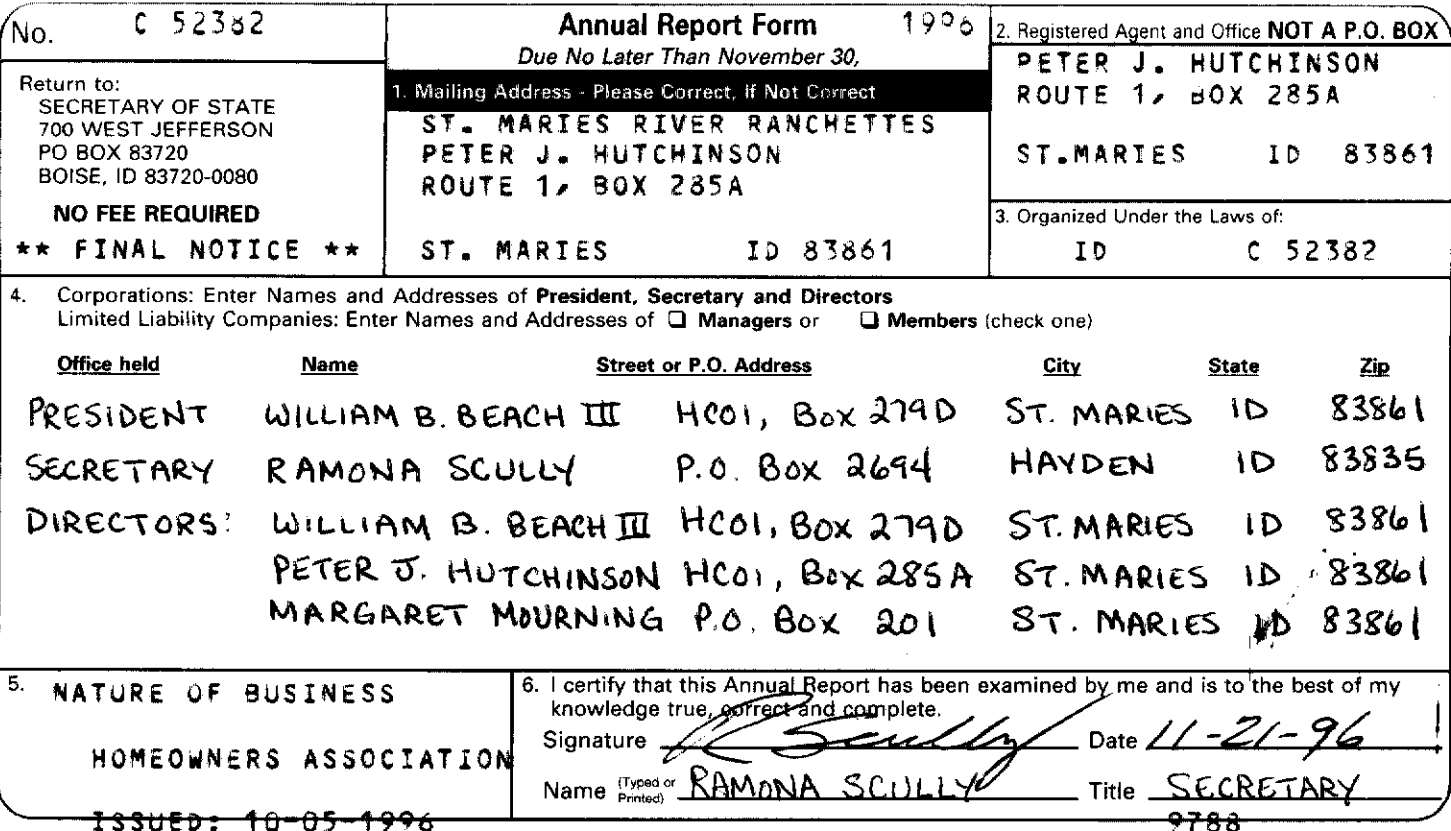 No. C 52382
Annual Report Form 1996
Due No Later Than November 30,
Return to:
SECRETARY OF STATE
700 WEST JEFFERSON
PO BOX 83720
BOISE, ID 83720-0080
NO FEE REQUIRED
** FINAL NOTICE **
1. Mailing Address - Please Correct, If Not Correct
ST. MARIES RIVER RANCHETTES
PETER J. HUTCHINSON
ROUTE 1, BOX 285A
ST. MARIES ID 83861
2. Registered Agent and Office NOT A P.O. BOX
PETER J. HUTCHINSON
ROUTE 1, BOX 285A
ST.MARIES ID 83861
3. Organized Under the Laws of:
ID C 52382
4. Corporations: Enter Names and Addresses of President, Secretary and Directors
Limited Liability Companies: Enter Names and Addresses of ❑ Managers or ❑ Members (check one)
Office held Name Street or P.O. Address City State Zip
PRESIDENT WILLIAM B. BEACH III HC01, Box 279D ST. MARIES ID 83861
SECRETARY RAMONA SCULLY P.O. Box 2694 HAYDEN ID 83835
DIRECTORS: WILLIAM B. BEACH III HC01, Box 279D ST. MARIES ID 83861
PETER J. HUTCHINSON HC01, Box 285A ST. MARIES ID 83861
MARGARET MOURNING P.O. Box 201 ST. MARIES ID 83861
5. NATURE OF BUSINESS
HOMEOWNERS ASSOCIATION
ISSUED: 10-05-1996
6. I certify that this Annual Report has been examined by me and is to the best of my
knowledge true, correct and complete.
Signature R Scully Date 11-21-96
Name (Typed or Printed) RAMONA SCULLY Title SECRETARY
9788